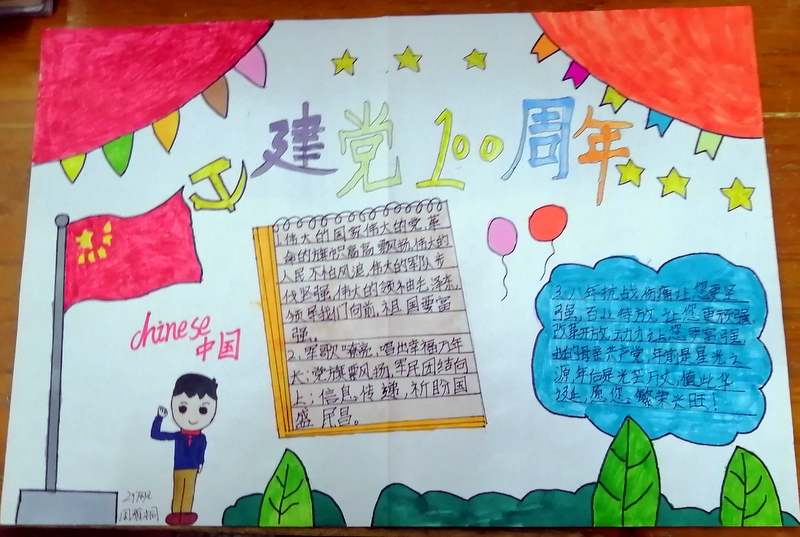 建党100周年
1.伟大的国家,伟大的党,革
命的旗帜高高飘扬,伟大的
人民不怕风浪,伟大的军队步
伐坚强,伟大的领袖毛泽东,
领导我们向前,祖国要富
强。
2、军歌嘹亮,唱出幸福万年
长;党旗飘扬,军民团结向
上;信息传递,祈盼国
盛民昌。
3.八年抗战,伤痛让您更坚
强,百业待放,让您更顽强,
改革开放,动力让您更富强,
我的母亲共产党,年前是星光之
源,年后是光芒万丈,值此华
诞,愿您,繁荣兴旺!
chinese
中国